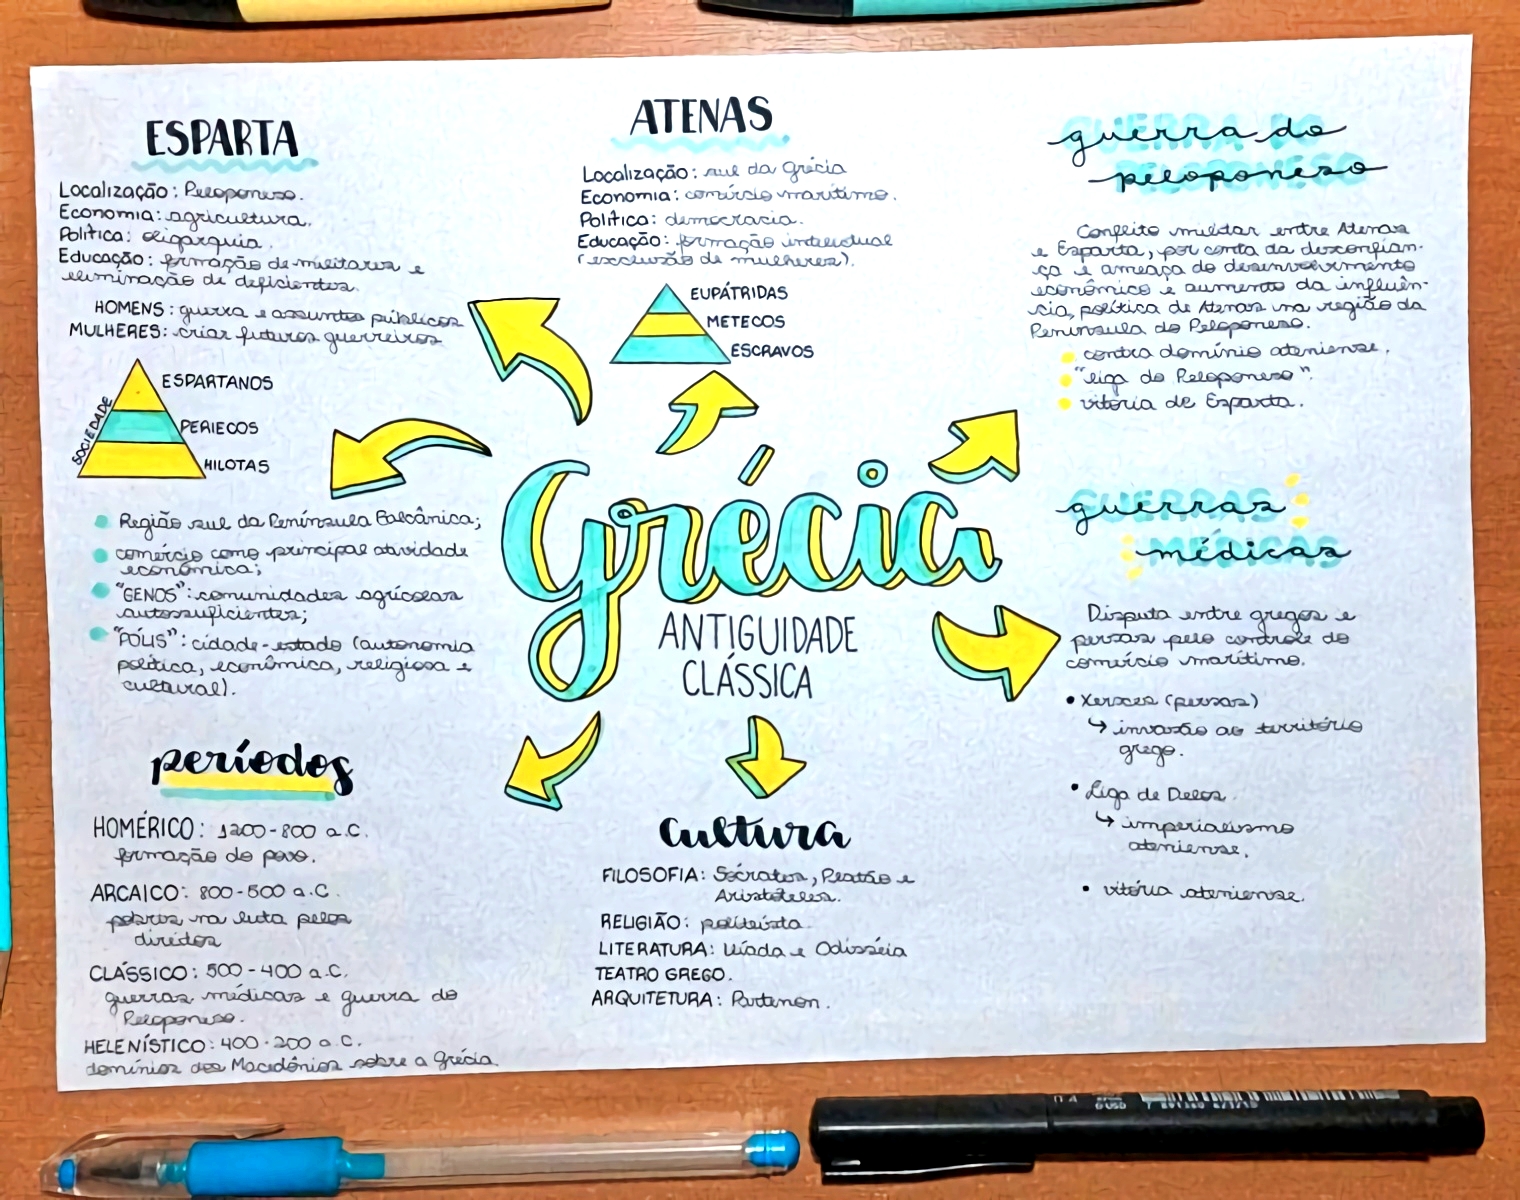 ESPARTA
Localização: Peloponeso.
Economia: agricultura.
Política: oligarquia.
Educação: formação de militares e
eliminação de deficientes.
HOMENS: guerra e assuntos públicos
MULHERES: criar futuros guerreiros
SOCIEDADE
ESPARTANOS
PERIECOS
HILOTAS
ATENAS
Localização: sul da Grécia
Economia: comércio marítimo.
Política: democracia.
Educação: formação intelectual
(exclusão de mulheres).
EUPÁTRIDAS
METECOS
ESCRAVOS
GUERRA DO
guerra do
PELOPONESO
peloponeso
Conflito militar entre Atenas
e Esparta, por conta da desconfian-
ça e ameaça do desenvolvimento
econômico e aumento da influên-
cia política de Atenas na região da
Península do Peloponeso.
contra domínio ateniense.
"liga do Peloponeso".
vitória de Esparta.
Grécia
ANTIGUIDADE
CLÁSSICA
Região sul da Península Balcânica;
comércio como principal atividade
econômica;
"GENOS": comunidades agrícolas
autossuficientes;
"PÓLIS": cidade-estado (autonomia
política, econômica, religiosa e
cultural).
GUERRAS
guerras
MÉDICAS
médicas
Disputa entre gregos e
persas pelo controle do
comércio marítimo.
• Xerxes (persas)
↳ invasão ao território
grego.
• Liga de Delos.
↳ imperialismo
ateniense.
• vitória ateniense.
períodos
HOMÉRICO: 1200-800 a.C.
formação do povo.
ARCAICO: 800-500 a.C.
pobres na luta pelos
direitos
CLÁSSICO: 500-400 a.C.
guerras médicas e guerra do
Peloponeso.
HELENÍSTICO: 400-200 a.C.
domínios dos Macedônios sobre a Grécia
cultura
FILOSOFIA: Sócrates, Platão e
Aristóteles.
RELIGIÃO: politeísta
LITERATURA: Ilíada e Odisséia
TEATRO GREGO.
ARQUITETURA: Partenon.